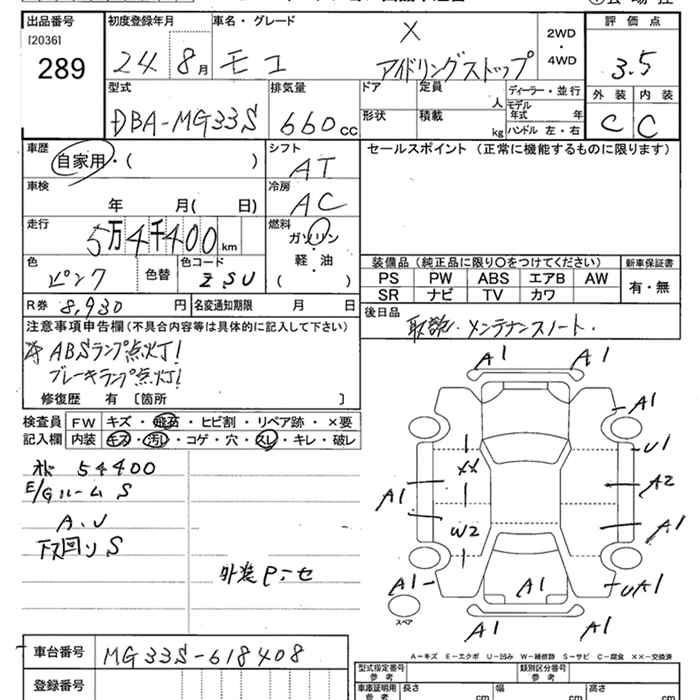 出品番号 初度登録年月 車名・グレード 評価点
[2036]
289
24 8月 モコ X アイドリングストップ
2WD・4WD
3.5
型式 排気量 ドア 定員 人 ディーラー・並行 外装 内装
DBA-MG33S 660cc 形状 積載 kg モデル年式 年 ハンドル 左・右 C C
車歴 自家用・( ) シフト AT
セールスポイント (正常に機能するものに限ります)
車検 年 月( 日) 冷房 AC
走行 5万4千400km 燃料 ガソリン 軽・油 ( )
色 ピンク 色替 色コード ZSU
装備品 (純正品に限り○をつけてください) 新車保証書
PS PW ABS エアB AW 有・無
SR ナビ TV カワ
R券 8,930円 名変通知期限 月 日
後日品 取説・メンテナンスノート・
注意事項申告欄 (不具合内容等は具体的に記入して下さい)
ABSランプ点灯!
ブレーキランプ点灯!
修復歴 有 〔箇所 〕
検査員記入欄
FW キズ・飛石・ヒビ割・リペア跡・×要
内装 キズ・汚レ・コゲ・穴・スレ・キレ・破レ
54400
E/Gルーム S
A.U
下回り S
外装 P=セ
A1 A1
A1
U1
XX
A2
A1
W2
A1
A1
A1
UA1
スペア
A1 A1
A−キズ E−エクボ U−凹み W−補修跡 S−サビ C−腐食 ××−交換済
車台番号 MG33S-618408
登録番号
型式指定番号 参考 類別区分番号 参考
車庫証明用 参考 長さ cm 幅 cm 高さ cm